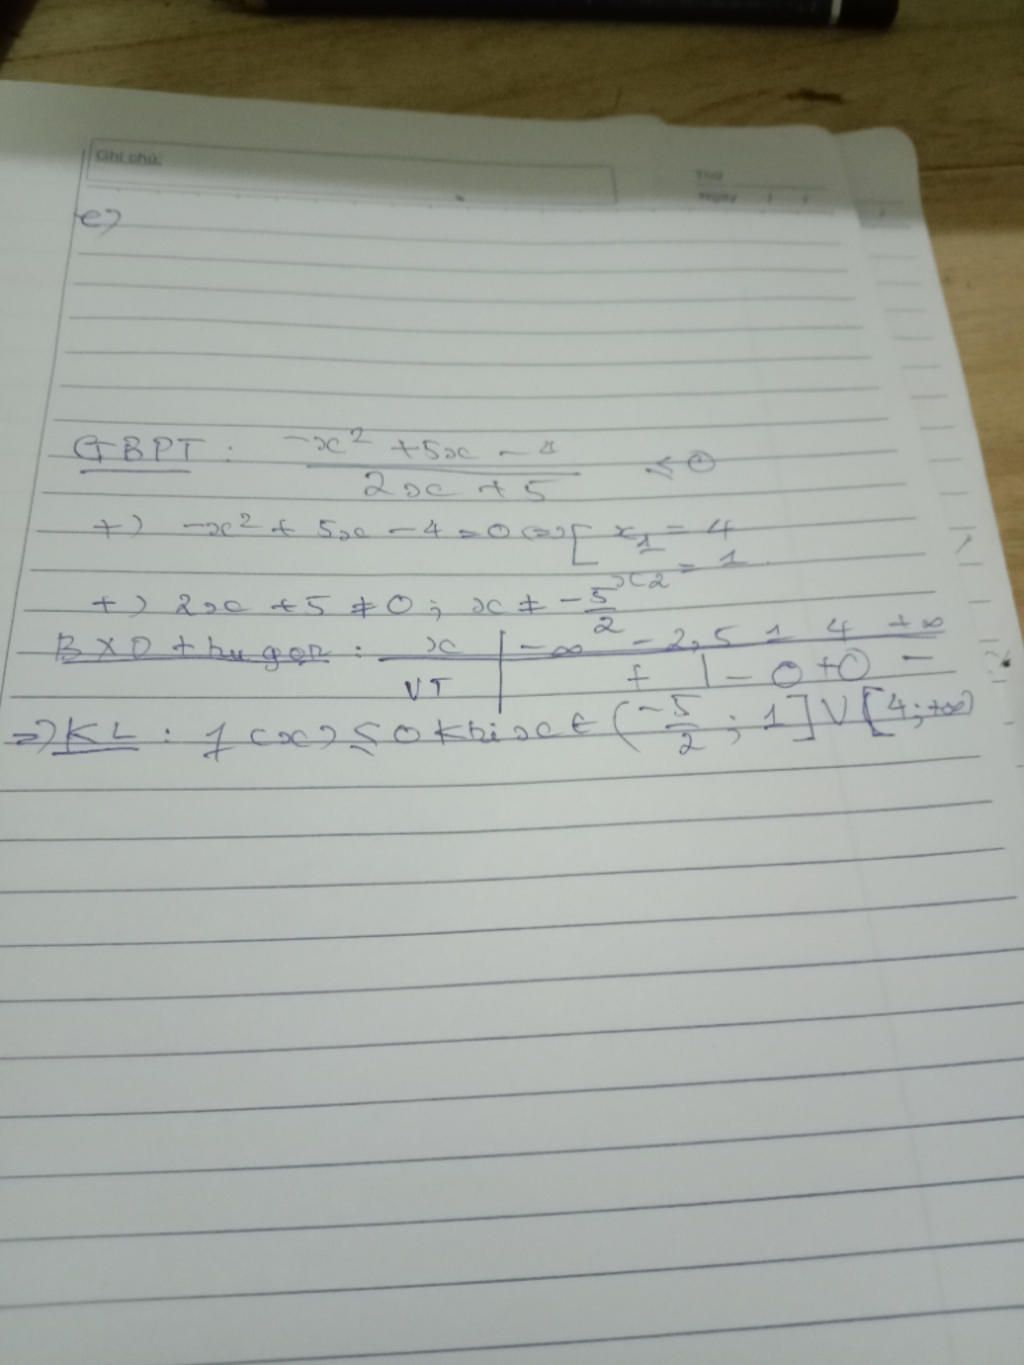 Ghi chú:
Thứ
Ngày / /
e)
GBPT: (-x² + 5x - 4) / (2x + 5) ≤ 0
+) -x² + 5x - 4 = 0 <=> [ x₁ = 4
x₂ = 1
+) 2x + 5 ≠ 0 ; x ≠ -5/2
BXD thu gọn: x | -∞ -2,5 1 4 +∞
VT | + | - 0 + 0 -
=> KL: f(x) ≤ 0 khi x ∈ (-5/2 ; 1] V [4; +∞)